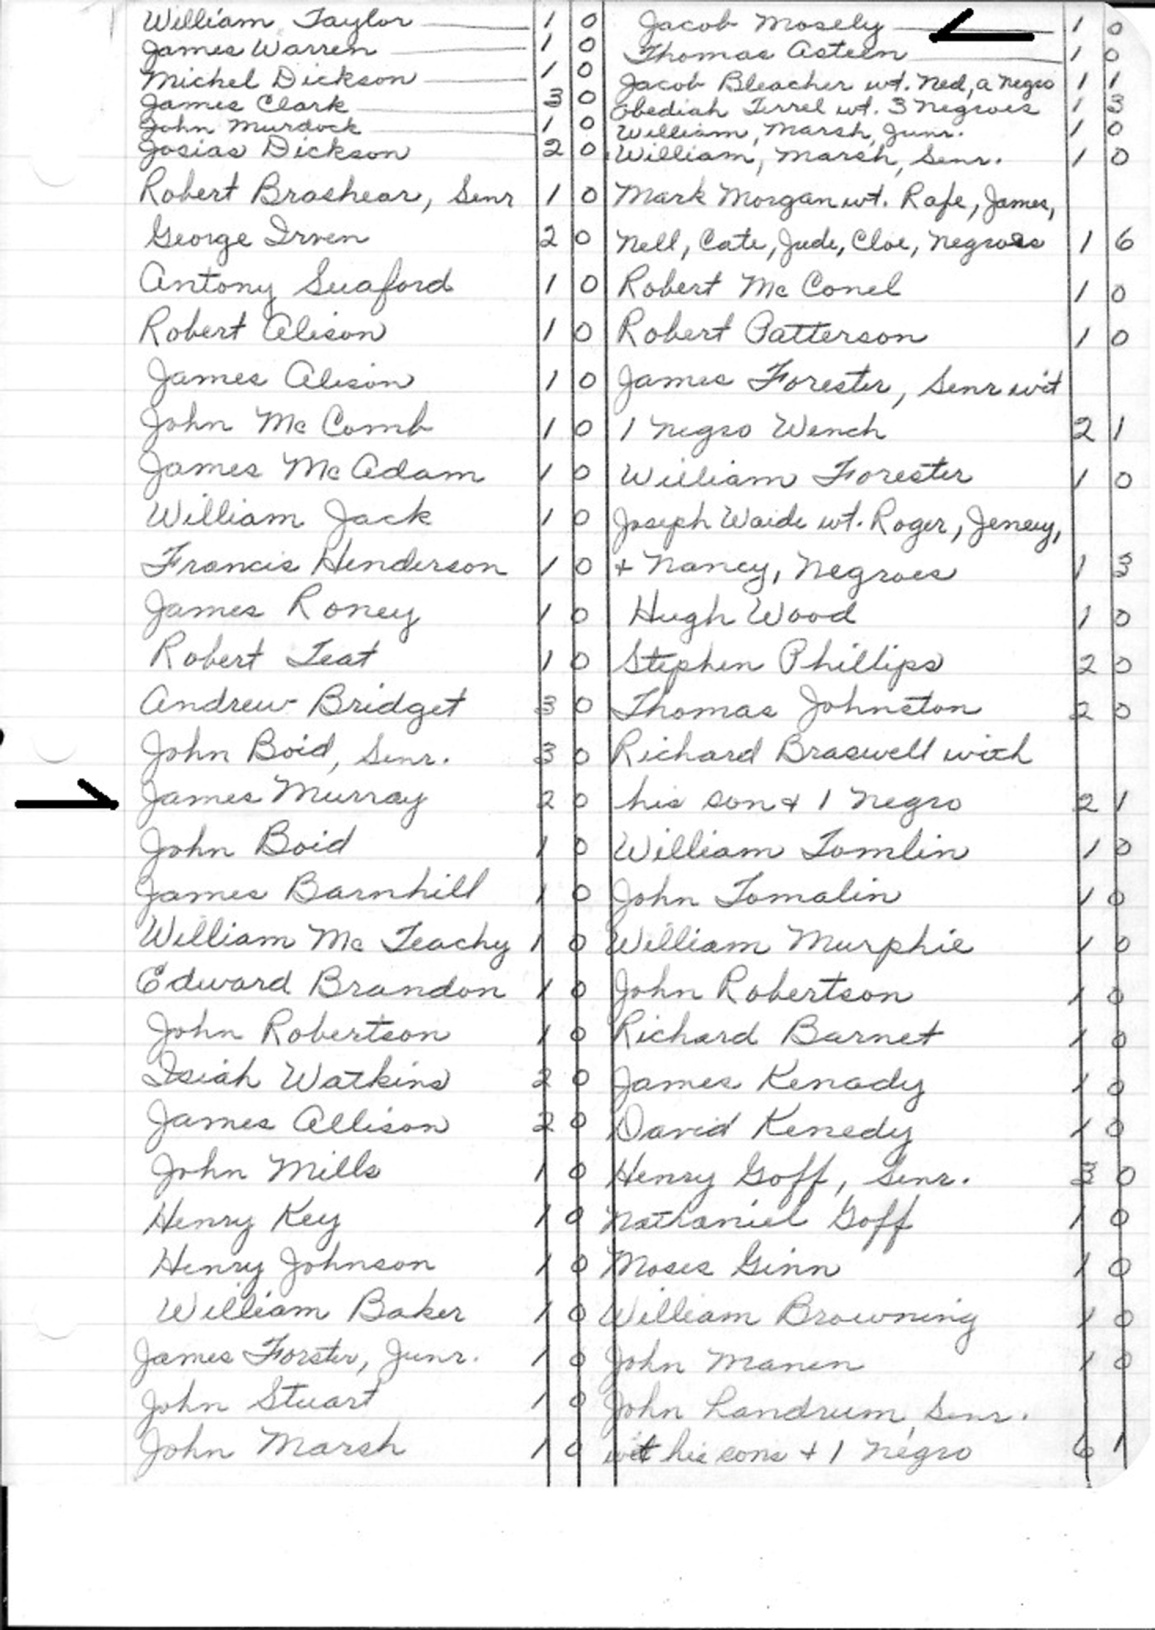 William Taylor 1 0
James Warren 1 0
Michel Dickson 1 0
James Clark 3 0
John Murdock 1 0
Josias Dickson 2 0
Robert Brashear, Senr 1 0
George Irven 2 0
Antony Suaford 1 0
Robert Alison 1 0
James Alison 1 0
John McComb 1 0
James McAdam 1 0
William Jack 1 0
Francis Henderson 1 0
James Roney 1 0
Robert Teat 1 0
Andrew Bridget 3 0
John Boid, Senr. 3 0
James Murray 2 0
John Boid 1 0
James Barnhill 1 0
William McTeachy 1 0
Edward Brandon 1 0
John Robertson 1 0
Isiah Watkins 2 0
James Allison 2 0
John Mills 1 0
Henry Key 1 0
Henry Johnson 1 0
William Baker 1 0
James Forster, Junr. 1 0
John Stuart 1 0
John Marsh 1 0
Jacob Mosely 1 0
Thomas Asteen 1 0
Jacob Bleacher wt. Ned, a Negro 1 1
Obediah Terrel wt. 3 Negroes 1 3
William, Marsh, Junr. 1 0
William, Marsh, Senr. 1 0
Mark Morgan wt. Rafe, James,
Nell, Cate, Jude, Cloe, Negroes 1 6
Robert McConel 1 0
Robert Patterson 1 0
James Forester, Senr wit
1 Negro Wench 2 1
William Forester 1 0
Joseph Waide wt. Roger, Jeney,
+ Nancy, Negroes 1 3
Hugh Wood 1 0
Stephen Phillips 2 0
Thomas Johnston 2 0
Richard Braswell with
his son + 1 Negro 2 1
William Tomlin 1 0
John Tomalin 1 0
William Murphie 1 0
John Robertson 1 0
Richard Barnet 1 0
James Kenady 1 0
David Kenedy 1 0
Henry Goff, Senr. 3 0
Nathaniel Goff 1 0
Moses Ginn 1 0
William Browning 1 0
John Manen 1 0
John Landrum, Senr.
wit his sons + 1 Negro 6 1